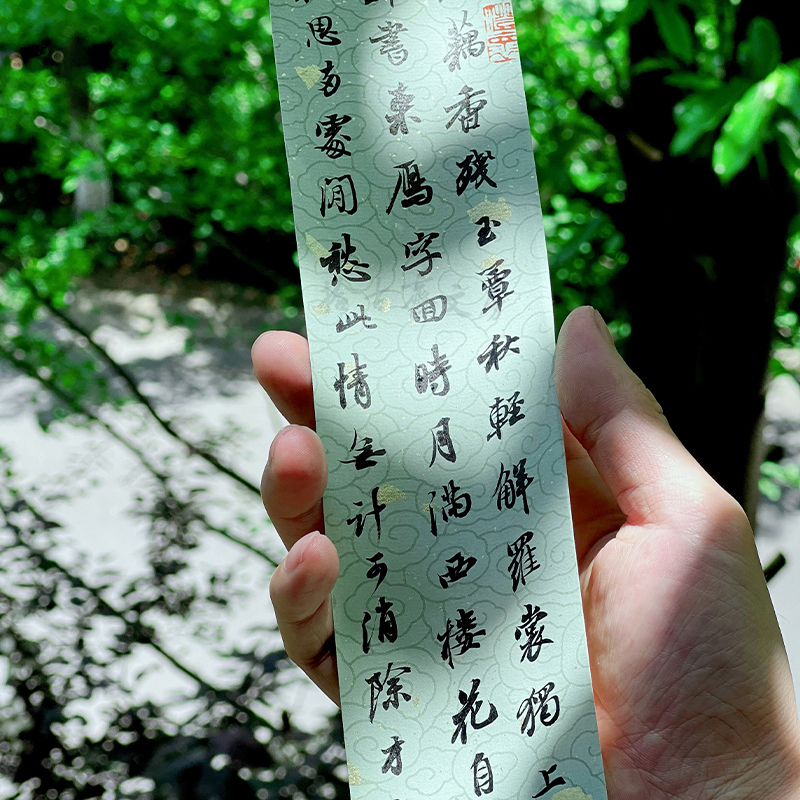 藕香殘玉簟秋輕解羅裳獨上
書來鴈字回時月滿西樓花自
思兩處閒愁此情無計可消除才